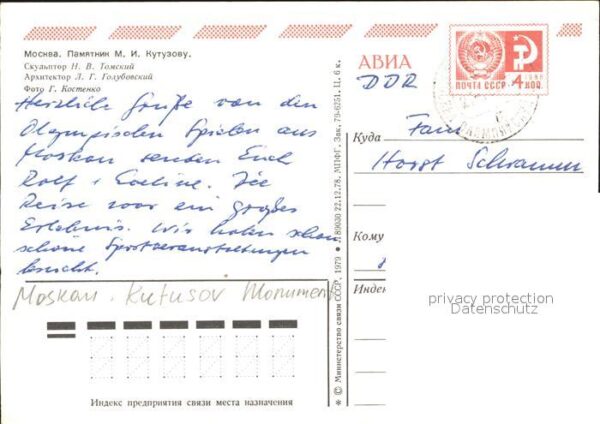 Москва. Памятник М. И. Кутузову.
Скульптор Н. В. Томский
Архитектор Л. Г. Голубовский
Фото Г. Костенко
Herzliche Grüße von den
Olympischen Spielen aus
Moskau senden Euch
Rolf +
Die
Reise war ein großes
Erlebnis. Wir haben schon
schöne Sportveranstaltungen
besucht.
Moskau. Kutusov Monument
Индекс предприятия связи места назначения
* © Министерство связи СССР, 1979 ● Л 89030 22.12.78. МПФГ. Зак. 79-6251. Ц. 6 к.
АВИА
DDR
ПОЧТА СССР 4 КОП.
Куда
Fam
Horst Schramm
Кому
Индек
privacy protection
Datenschutz